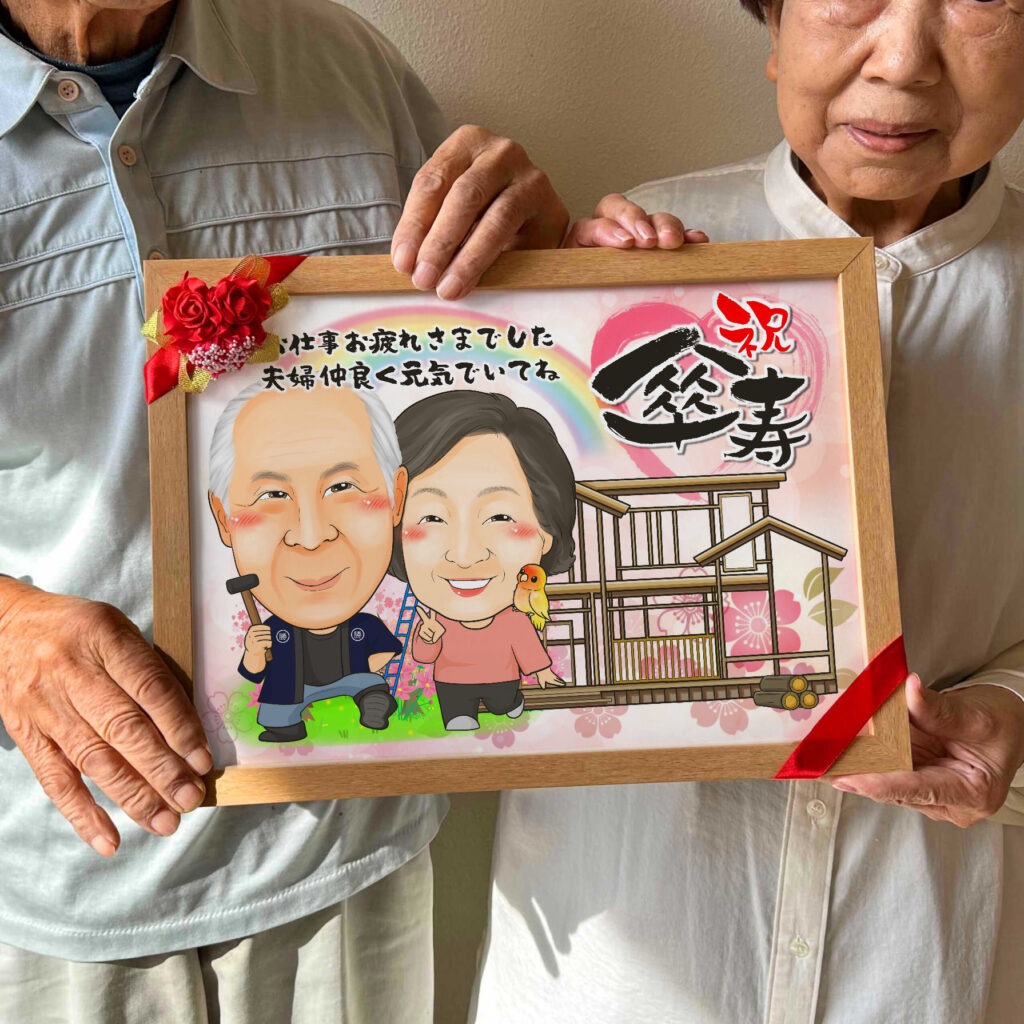 仕事お疲れさまでした
夫婦仲良く元気でいてね
祝
傘寿
勝
勝